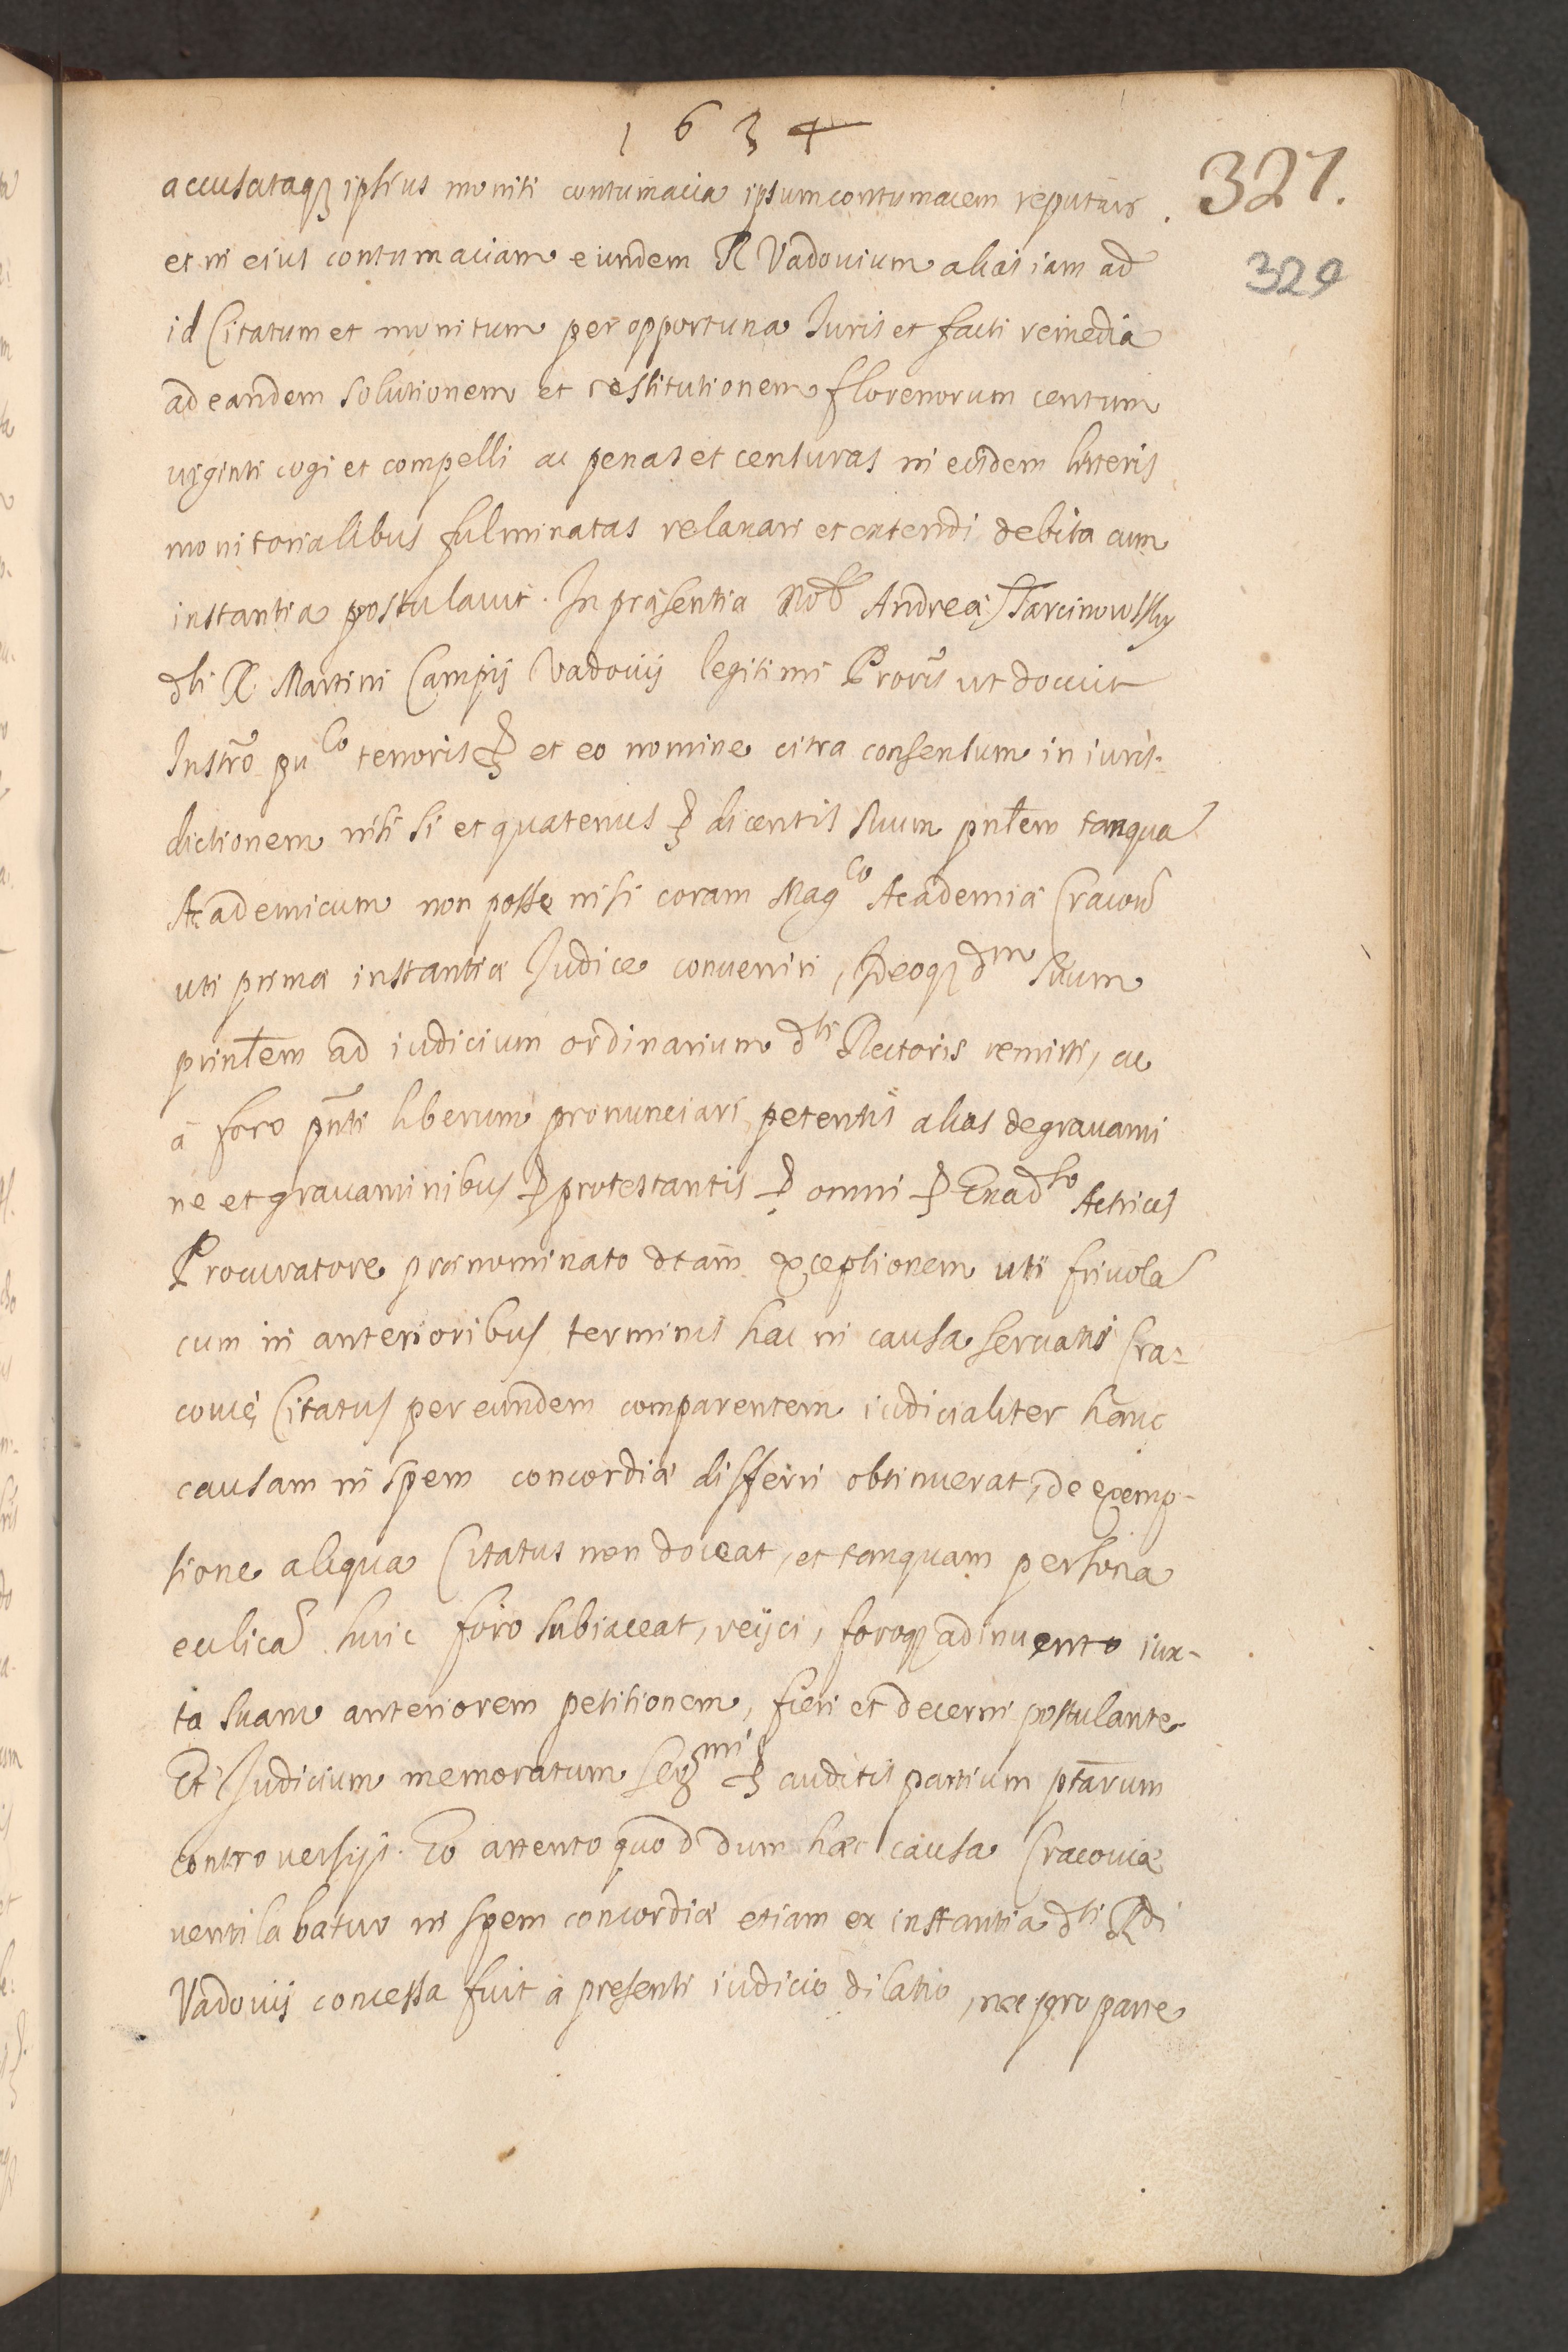 1634
327.
329
accusataq; ipsius moniti contumacia ipsum contumacem reputari
et in eius contumaciam eundem R Vadouium alias iam ad
id Citatum et monitum per opportuna Juris et facti remedia
ad eandem solutionem et restitutionem florenorum centum
viginti cogi et compelli ac penas et censuras in eisdem litteris
monitorialibus fulminatas relaxari et extendi debita cum
instantia postulauit. In præsentia Nob Andreæ Tarcinowsky
dti R. Martini Campij Vadouij legitimi Proris ut docuit
Instro pu co tenoris et eo nomine citra consensum in iuris-
dictionem nisi si et quatenus dicentis suum pntem tanqua
Academicum non posse nisi coram Mag co Academiæ Cracou
uti primæ instantiæ Judice conueniri, Ideoq; dm suum
prinlem ad iudicium ordinarium dti Rectoris remitti, ac
à foro pnti liberum pronunciari petentis alias de grauami
ne et grauaminibus protestantis omni Ex ad to Actricis
Procuratore prænominato dtam exceptionem uti friuola
cum in anterioribus terminis hac in causa seruatis Cra-
couiæ Citatus per eundem comparentem iudicialiter hanc
causam in spem concordiæ differri obtinuerat, de exemp-
tione aliqua Citatus non doceat, et tanquam persona
ecclica huic foro subiaceat, reijci, foroq; adinuento iux-
ta suam anteriorem petitionem, fieri et decerni postulante
Et Judicium memoratum auditis partium ptarum
controuersijs. Eo attento quod dum hæc causa Cracouiæ
ventilabatur in spem concordiæ etiam ex instantia dti Rdi
Vadouij concessa fuit à presenti iudicio dilatio, nec pro parte